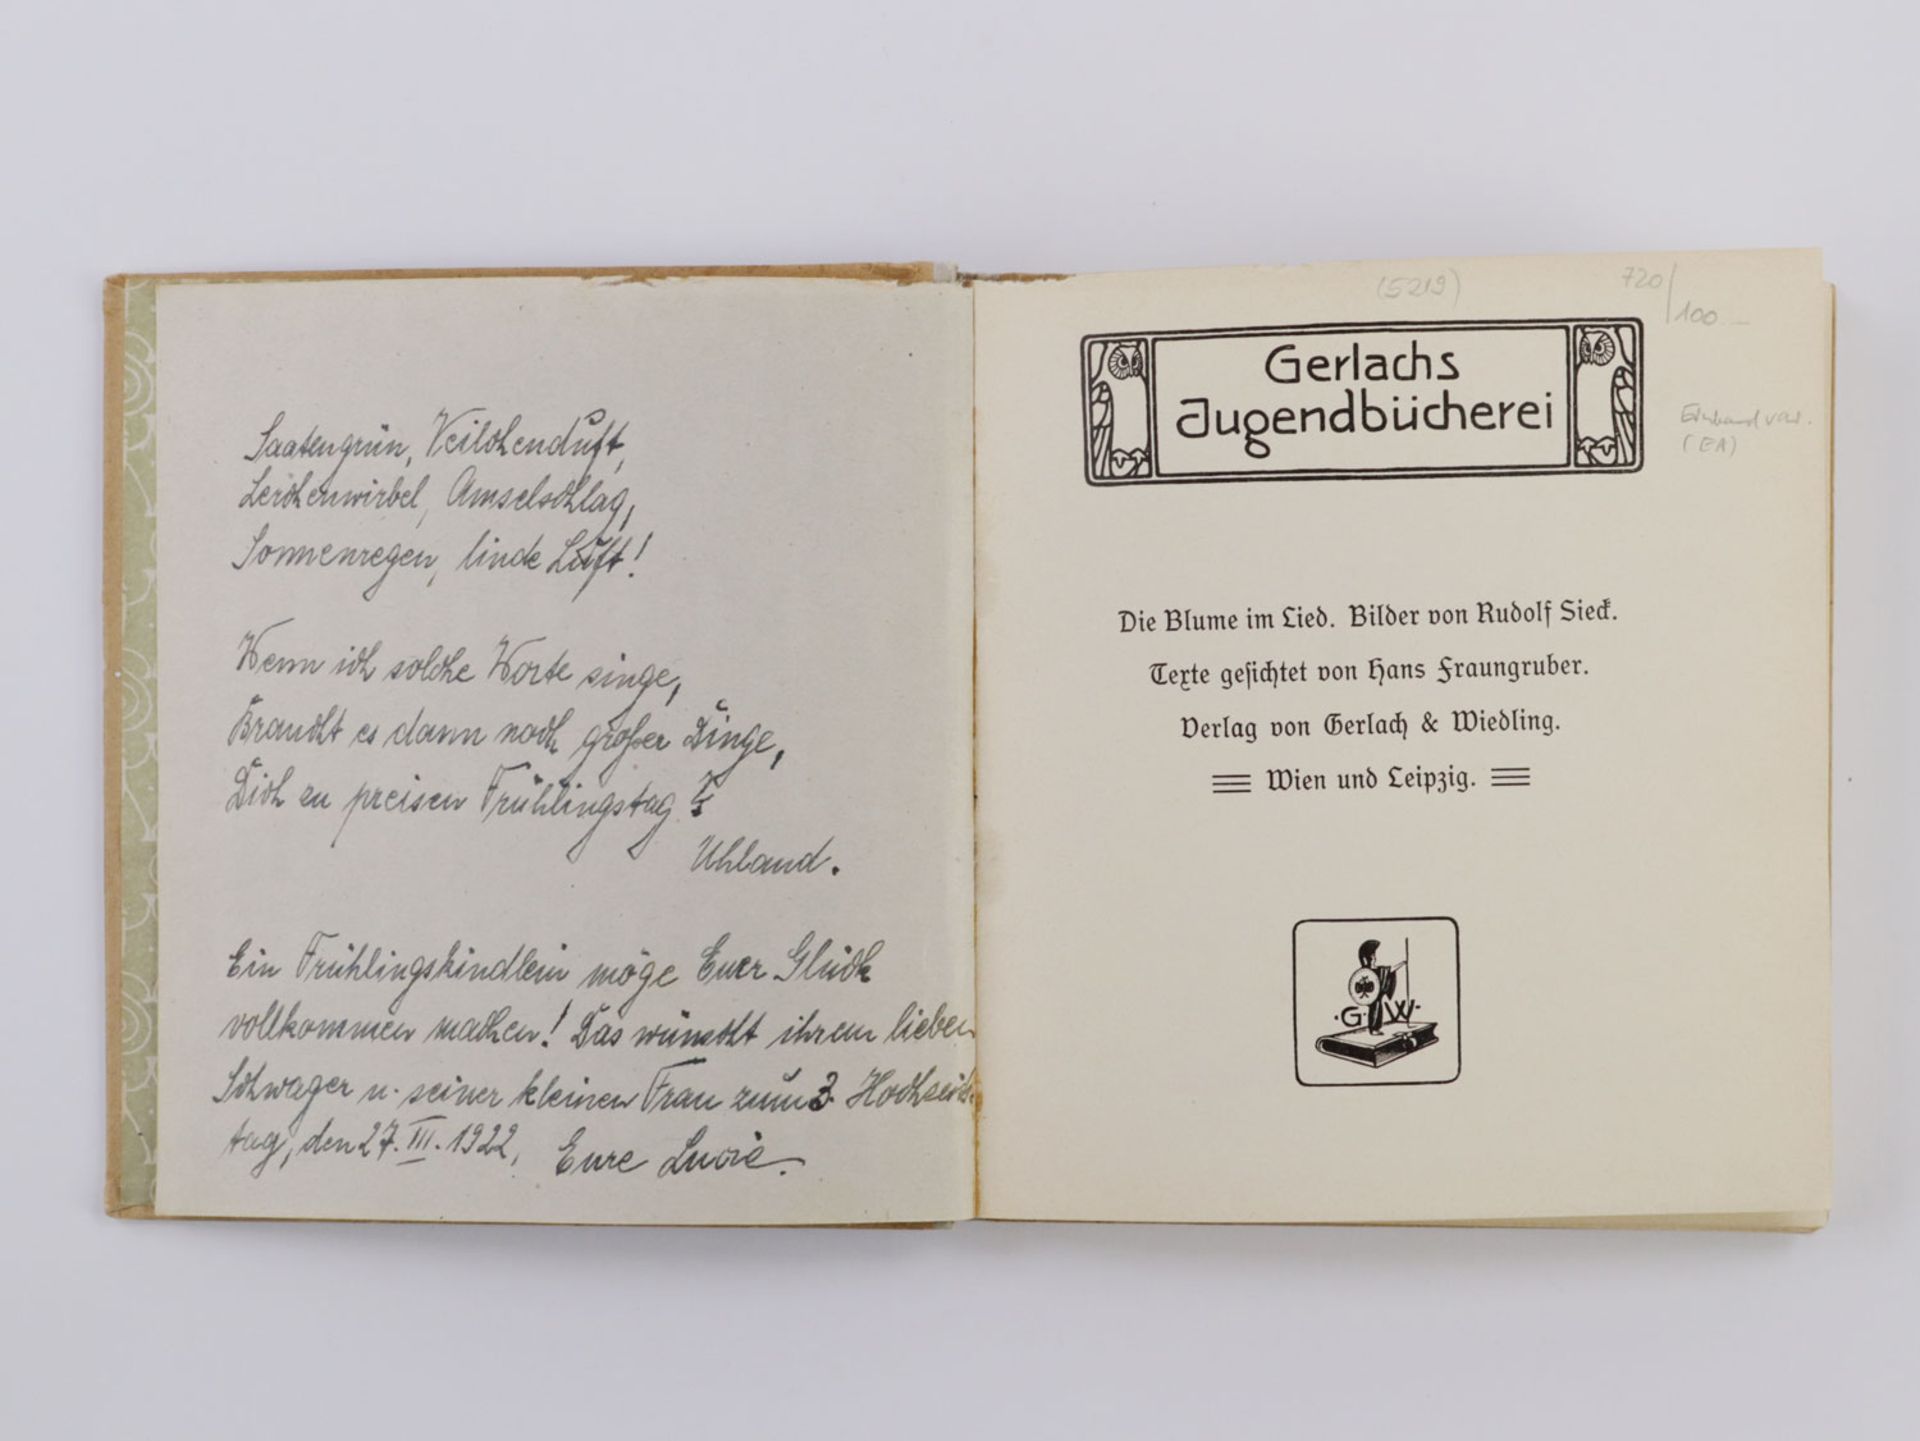 Saatengrün, Veilchenduft,
Lerchenwirbel, Amselschlag,
Sonnenregen, linde Luft!
Wenn ich solche Worte singe,
Braucht es dann noch großer Dinge,
Dich zu preisen Frühlingstag?
Uhland.
Ein Frühlingskindlein möge Euer Glück
vollkommen machen! Das wünscht ihrem lieben
Schwager u. seiner kleinen Frau zum 3. Hochzeits-
tag, den 27. III. 1922, Eure Lucie.
(5219)
720/
100.—
Gerlachs
Jugendbücherei
Einband var.
(EA)
Die Blume im Lied. Bilder von Rudolf Sieck.
Texte gesichtet von Hans Fraungruber.
Verlag von Gerlach & Wiedling.
Wien und Leipzig.
·G·W·